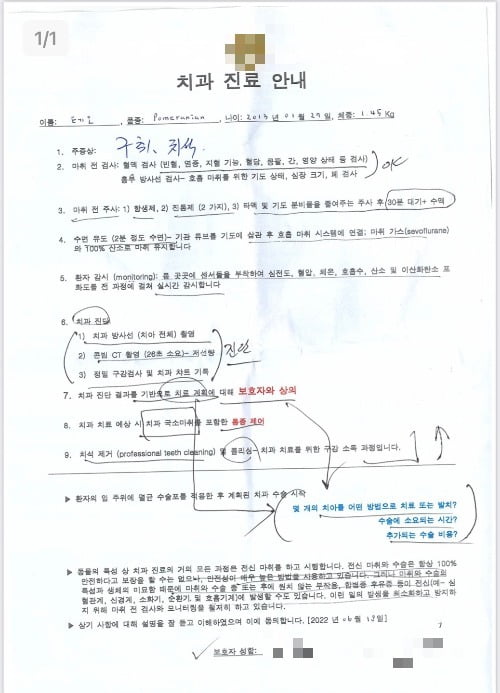 1/1
치과 진료 안내
이름: 품종: Pomeranian, 나이: 2013 년 01 월 29 일, 체중: 1.45 Kg
1. 주증상: 구취, 치석
2. 마취 전 검사: 혈액 검사 (빈혈, 염증, 지혈 기능, 혈당, 콩팥, 간, 영양 상태 등 검사) OK
흉부 방사선 검사- 호흡 마취를 위한 기도 상태, 심장 크기, 폐 검사
3. 마취 전 주사: 1) 항생제, 2) 진통제 (2 가지), 3) 타액 및 기도 분비물을 줄여주는 주사 후 30분 대기+ 수액
4. 수면 유도 (2분 정도 수면)- 기관 튜브를 기도에 삽관 후 호흡 마취 시스템에 연결; 마취 가스(sevoflurane)
와 100% 산소로 마취 유지합니다
5. 환자 감시 (monitoring): 몸 곳곳에 센서들을 부착하여 심전도, 혈압, 체온, 호흡수, 산소 및 이산화탄소 포
화도를 전 과정에 걸쳐 실시간 감시합니다
6. 치과 진단
1) 치과 방사선 (치아 전체) 촬영
2) 콘빔 CT 촬영 (26초 소요)- 저선량 진단
3) 정밀 구강검사 및 치과 차트 기록
7. 치과 진단 결과를 기반으로 치료 계획에 대해 보호자와 상의
8. 치과 치료 예상 시 치과 국소마취를 포함한 통증 제어
9. 치석 제거 (professional teeth cleaning) 및 폴리싱- 치과 치료를 위한 구강 소독 과정입니다.
▶ 환자의 입 주위에 멸균 수술포를 적용한 후 계획된 치과 수술 시작
몇 개의 치아를 어떤 방법으로 치료 또는 발치?
수술에 소요되는 시간?
추가되는 수술 비용?
▶ 동물의 특성 상 치과 진료의 거의 모든 과정은 전신 마취를 하고 시행합니다. 전신 마취와 수술은 항상 100%
안전하다고 보장을 할 수는 없으나, 안전성이 매우 높은 방법을 사용하고 있습니다. 그러나 마취와 수술의
특성과 생체의 미묘함 때문에 마취와 수술 중 또는 후에 원치 않는 부작용, 합병증 후유증 등이 전신에- 심
혈관계, 신경계, 소화기, 순환기 및 호흡기계에 발생할 수도 있습니다. 이런 일의 발생을 최소화하고 방지하
기 위해 마취 전 검사와 모니터링을 철저히 하고 있습니다.
▶ 상기 사항에 대해 설명을 잘 듣고 이해하였으며 이에 동의합니다. [2022 년 06 월 13 일]
7
보호자 성함: